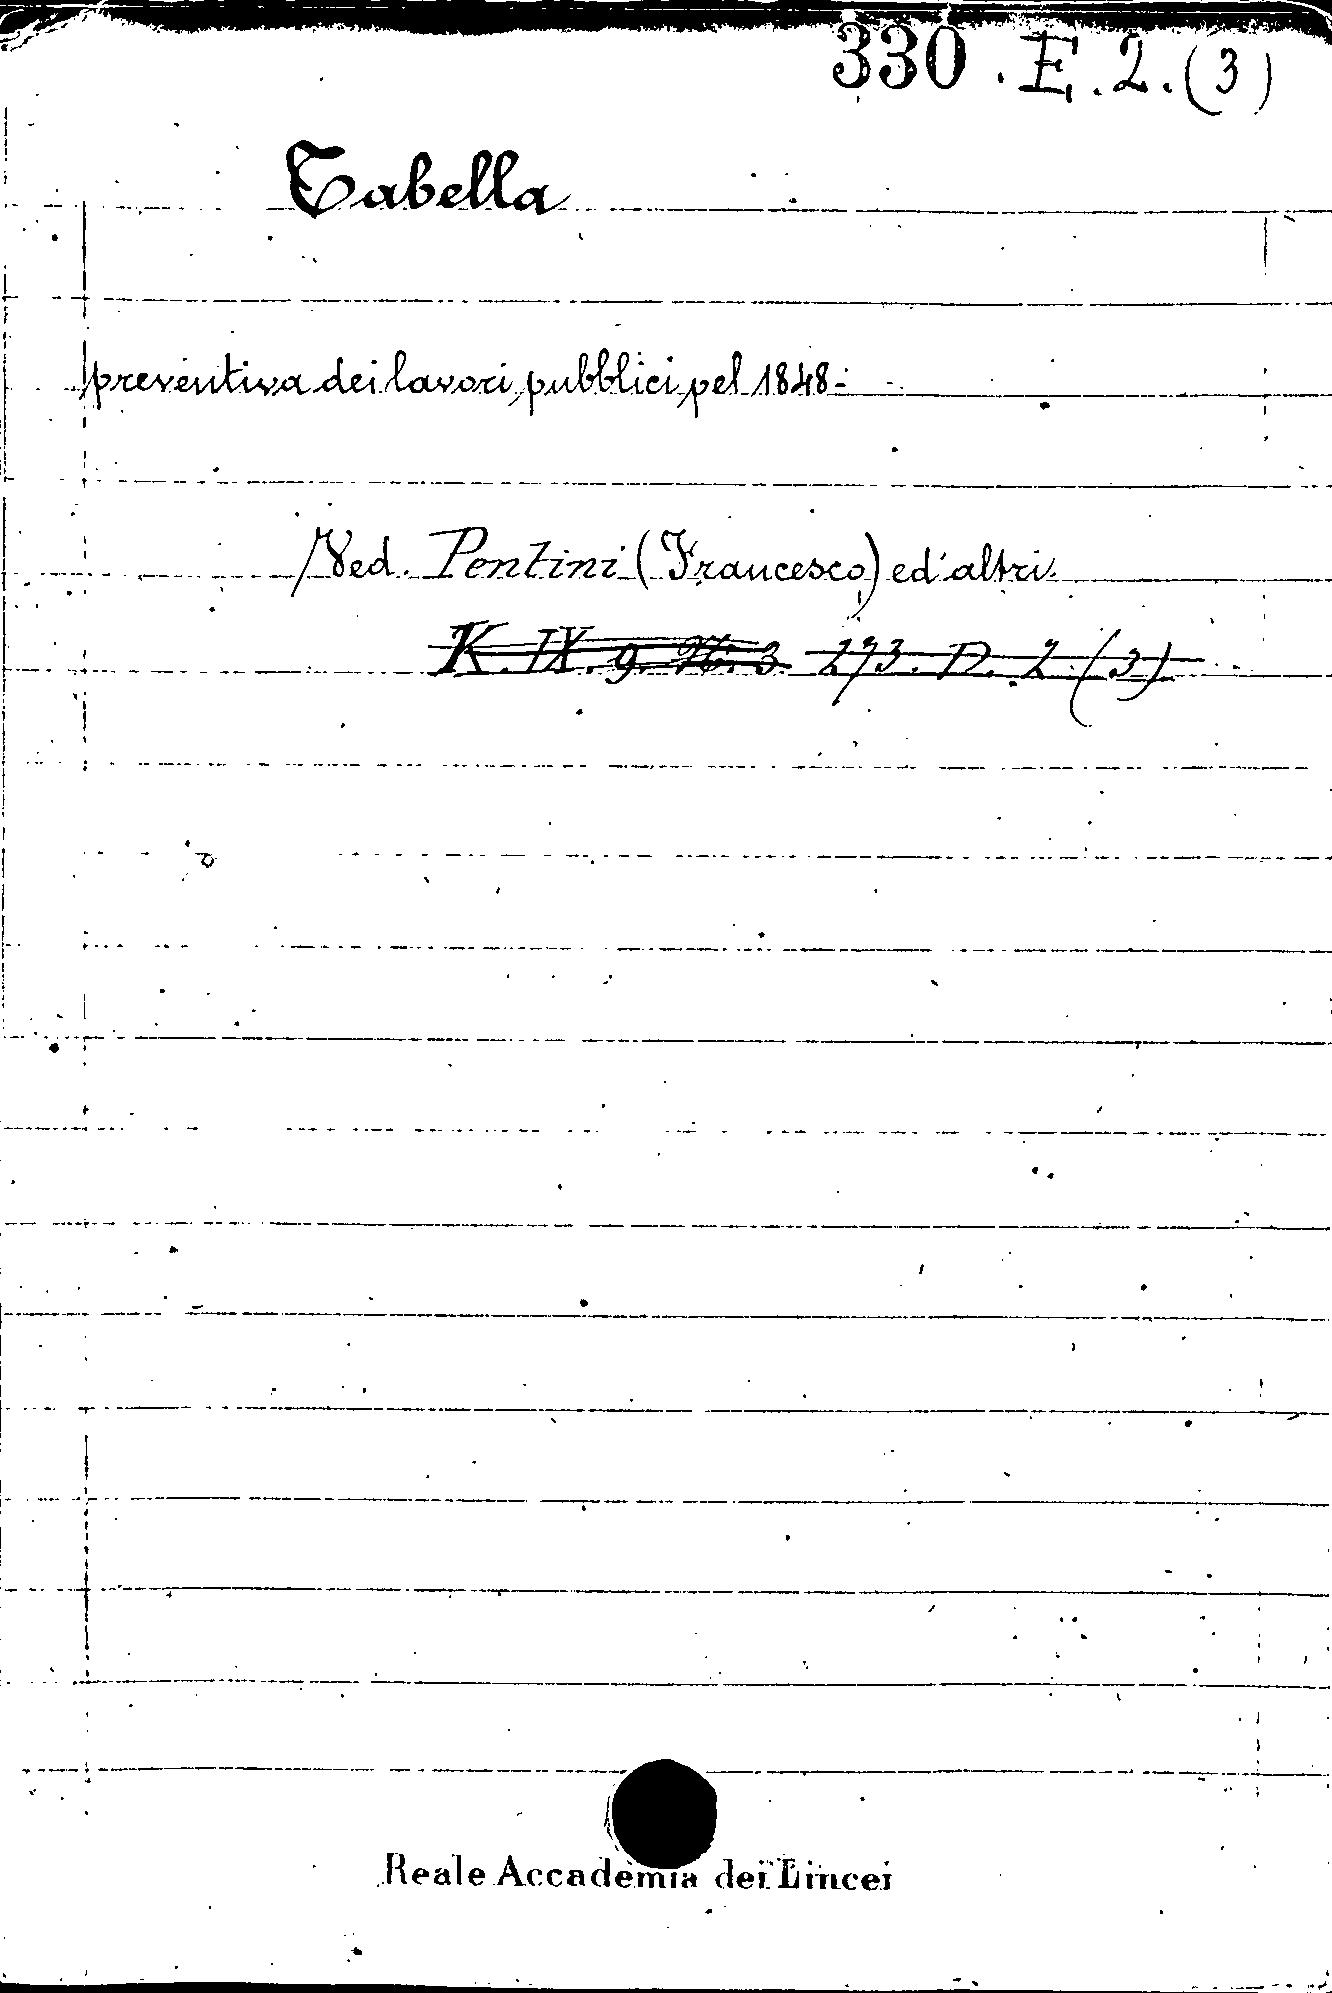 330. E. 2. (3)
Tabella
preventiva dei lavori pubblici pel 1848-
Ved. Pentini (Francesco) ed altri.
K. IX. g. 273. D. 2. (3)
Reale Accademia dei Lincei